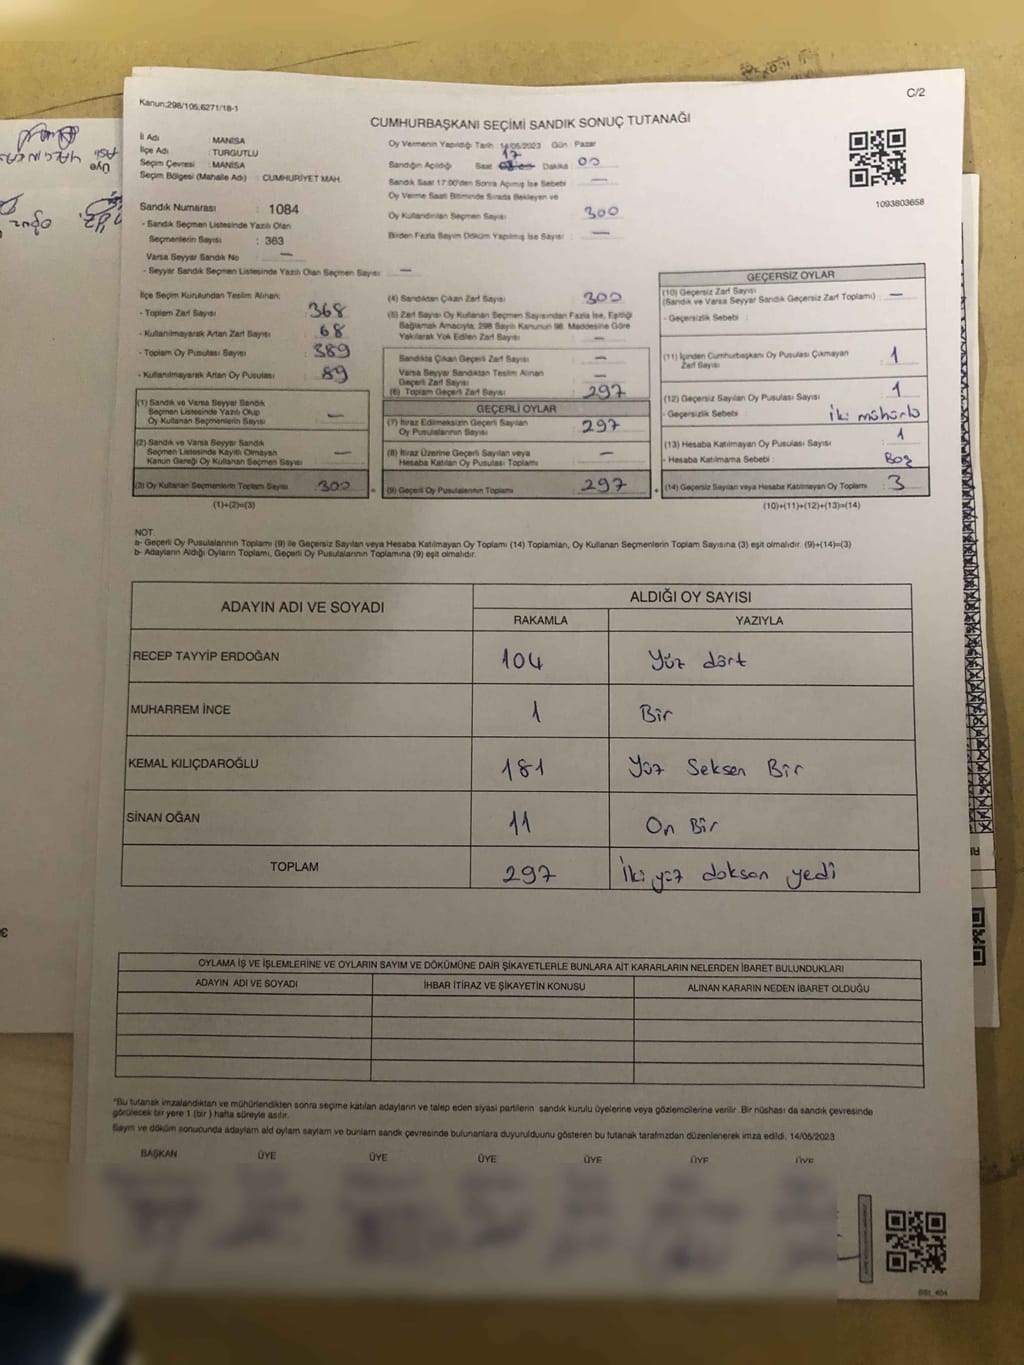 C/2
Kanun;298/105,6271/18-1
CUMHURBAŞKANI SEÇİMİ SANDIK SONUÇ TUTANAĞI
İl Adı : MANİSA
İlçe Adı : TURGUTLU
Seçim Çevresi : MANİSA
Seçim Bölgesi (Mahalle Adı) : CUMHURİYET MAH.
Sandık Numarası : 1084
- Sandık Seçmen Listesinde Yazılı Olan
Seçmenlerin Sayısı : 363
Varsa Seyyar Sandık No —
- Seyyar Sandık Seçmen Listesinde Yazılı Olan Seçmen Sayısı : —
Oy Vermenin Yapıldığı Tarih : 14/05/2023 Gün : Pazar
Sandığın Açıldığı Saat 17 Dakika : 00
Sandık Saat 17:00'den Sonra Açılmış İse Sebebi —
Oy Verme Saati Bitiminde Sırada Bekleyen ve
Oy Kullandırılan Seçmen Sayısı : 300
Birden Fazla Sayım Döküm Yapılmış İse Sayısı : —
1093803658
İlçe Seçim Kurulundan Teslim Alınan;
- Toplam Zarf Sayısı : 368
- Kullanılmayarak Artan Zarf Sayısı : 68
- Toplam Oy Pusulası Sayısı : 389
- Kullanılmayarak Artan Oy Pusulası : 89
(1) Sandık ve Varsa Seyyar Sandık
Seçmen Listesinde Yazılı Olup
Oy Kullanan Seçmenlerin Sayısı : —
(2) Sandık ve Varsa Seyyar Sandık
Seçmen Listesinde Kayıtlı Olmayan
Kanun Gereği Oy Kullanan Seçmen Sayısı : —
(3) Oy Kullanan Seçmenlerin Toplam Sayısı : 300
(1)+(2)=(3)
(4) Sandıktan Çıkan Zarf Sayısı : 300
(5) Zarf Sayısı Oy Kullanan Seçmen Sayısından Fazla İse, Eşitliği
Bağlamak Amacıyla, 298 Sayılı Kanunun 98. Maddesine Göre
Yakılarak Yok Edilen Zarf Sayısı : —
Sandıkta Çıkan Geçerli Zarf Sayısı : —
Varsa Seyyar Sandıktan Teslim Alınan
Geçerli Zarf Sayısı : —
(6) Toplam Geçerli Zarf Sayısı : 297
GEÇERLİ OYLAR
(7) İtiraz Edilmeksizin Geçerli Sayılan
Oy Pusulalarının Sayısı : 297
(8) İtiraz Üzerine Geçerli Sayılan veya
Hesaba Katılan Oy Pusulası Toplamı : —
(9) Geçerli Oy Pusulalarının Toplamı : 297
GEÇERSİZ OYLAR
(10) Geçersiz Zarf Sayısı
(Sandık ve Varsa Seyyar Sandık Geçersiz Zarf Toplamı) : —
- Geçersizlik Sebebi :
(11) İçinden Cumhurbaşkanı Oy Pusulası Çıkmayan
Zarf Sayısı : 1
(12) Geçersiz Sayılan Oy Pusulası Sayısı : 1
- Geçersizlik Sebebi : İki mühürlü
(13) Hesaba Katılmayan Oy Pusulası Sayısı : 1
- Hesaba Katılmama Sebebi : Boş
(14) Geçersiz Sayılan veya Hesaba Katılmayan Oy Toplamı : 3
(10)+(11)+(12)+(13)=(14)
NOT
a- Geçerli Oy Pusulalarının Toplamı (9) ile Geçersiz Sayılan veya Hesaba Katılmayan Oy Toplamı (14) Toplamları, Oy Kullanan Seçmenlerin Toplam Sayısına (3) eşit olmalıdır. (9)+(14)=(3)
b- Adayların Aldığı Oyların Toplamı, Geçerli Oy Pusulalarının Toplamına (9) eşit olmalıdır.
ADAYIN ADI VE SOYADI ALDIĞI OY SAYISI
RAKAMLA YAZIYLA
RECEP TAYYİP ERDOĞAN 104 Yüz dört
MUHARREM İNCE 1 Bir
KEMAL KILIÇDAROĞLU 181 Yüz Seksen Bir
SİNAN OĞAN 11 On Bir
TOPLAM 297 İki yüz doksan yedi
OYLAMA İŞ VE İŞLEMLERİNE VE OYLARIN SAYIM VE DÖKÜMÜNE DAİR ŞİKAYETLERLE BUNLARA AİT KARARLARIN NELERDEN İBARET BULUNDUKLARI
ADAYIN ADI VE SOYADI İHBAR İTİRAZ VE ŞİKAYETİN KONUSU ALINAN KARARIN NEDEN İBARET OLDUĞU
*Bu tutanak imzalandıktan ve mühürlendikten sonra seçime katılan adayların ve talep eden siyasi partilerin sandık kurulu üyelerine veya gözlemcilerine verilir .Bir nüshası da sandık çevresinde
görülecek bir yere 1 (bir ) hafta süreyle asılır.
Sayım ve döküm sonucunda adayların ald oyların sayıları ve bunların sandk çevresinde bulunanlara duyurulduunu gösteren bu tutanak tarafımzdan düzenlenerek imza edildi. 14/05/2023
BAŞKAN ÜYE ÜYE ÜYE ÜYE ÜYE ÜYE